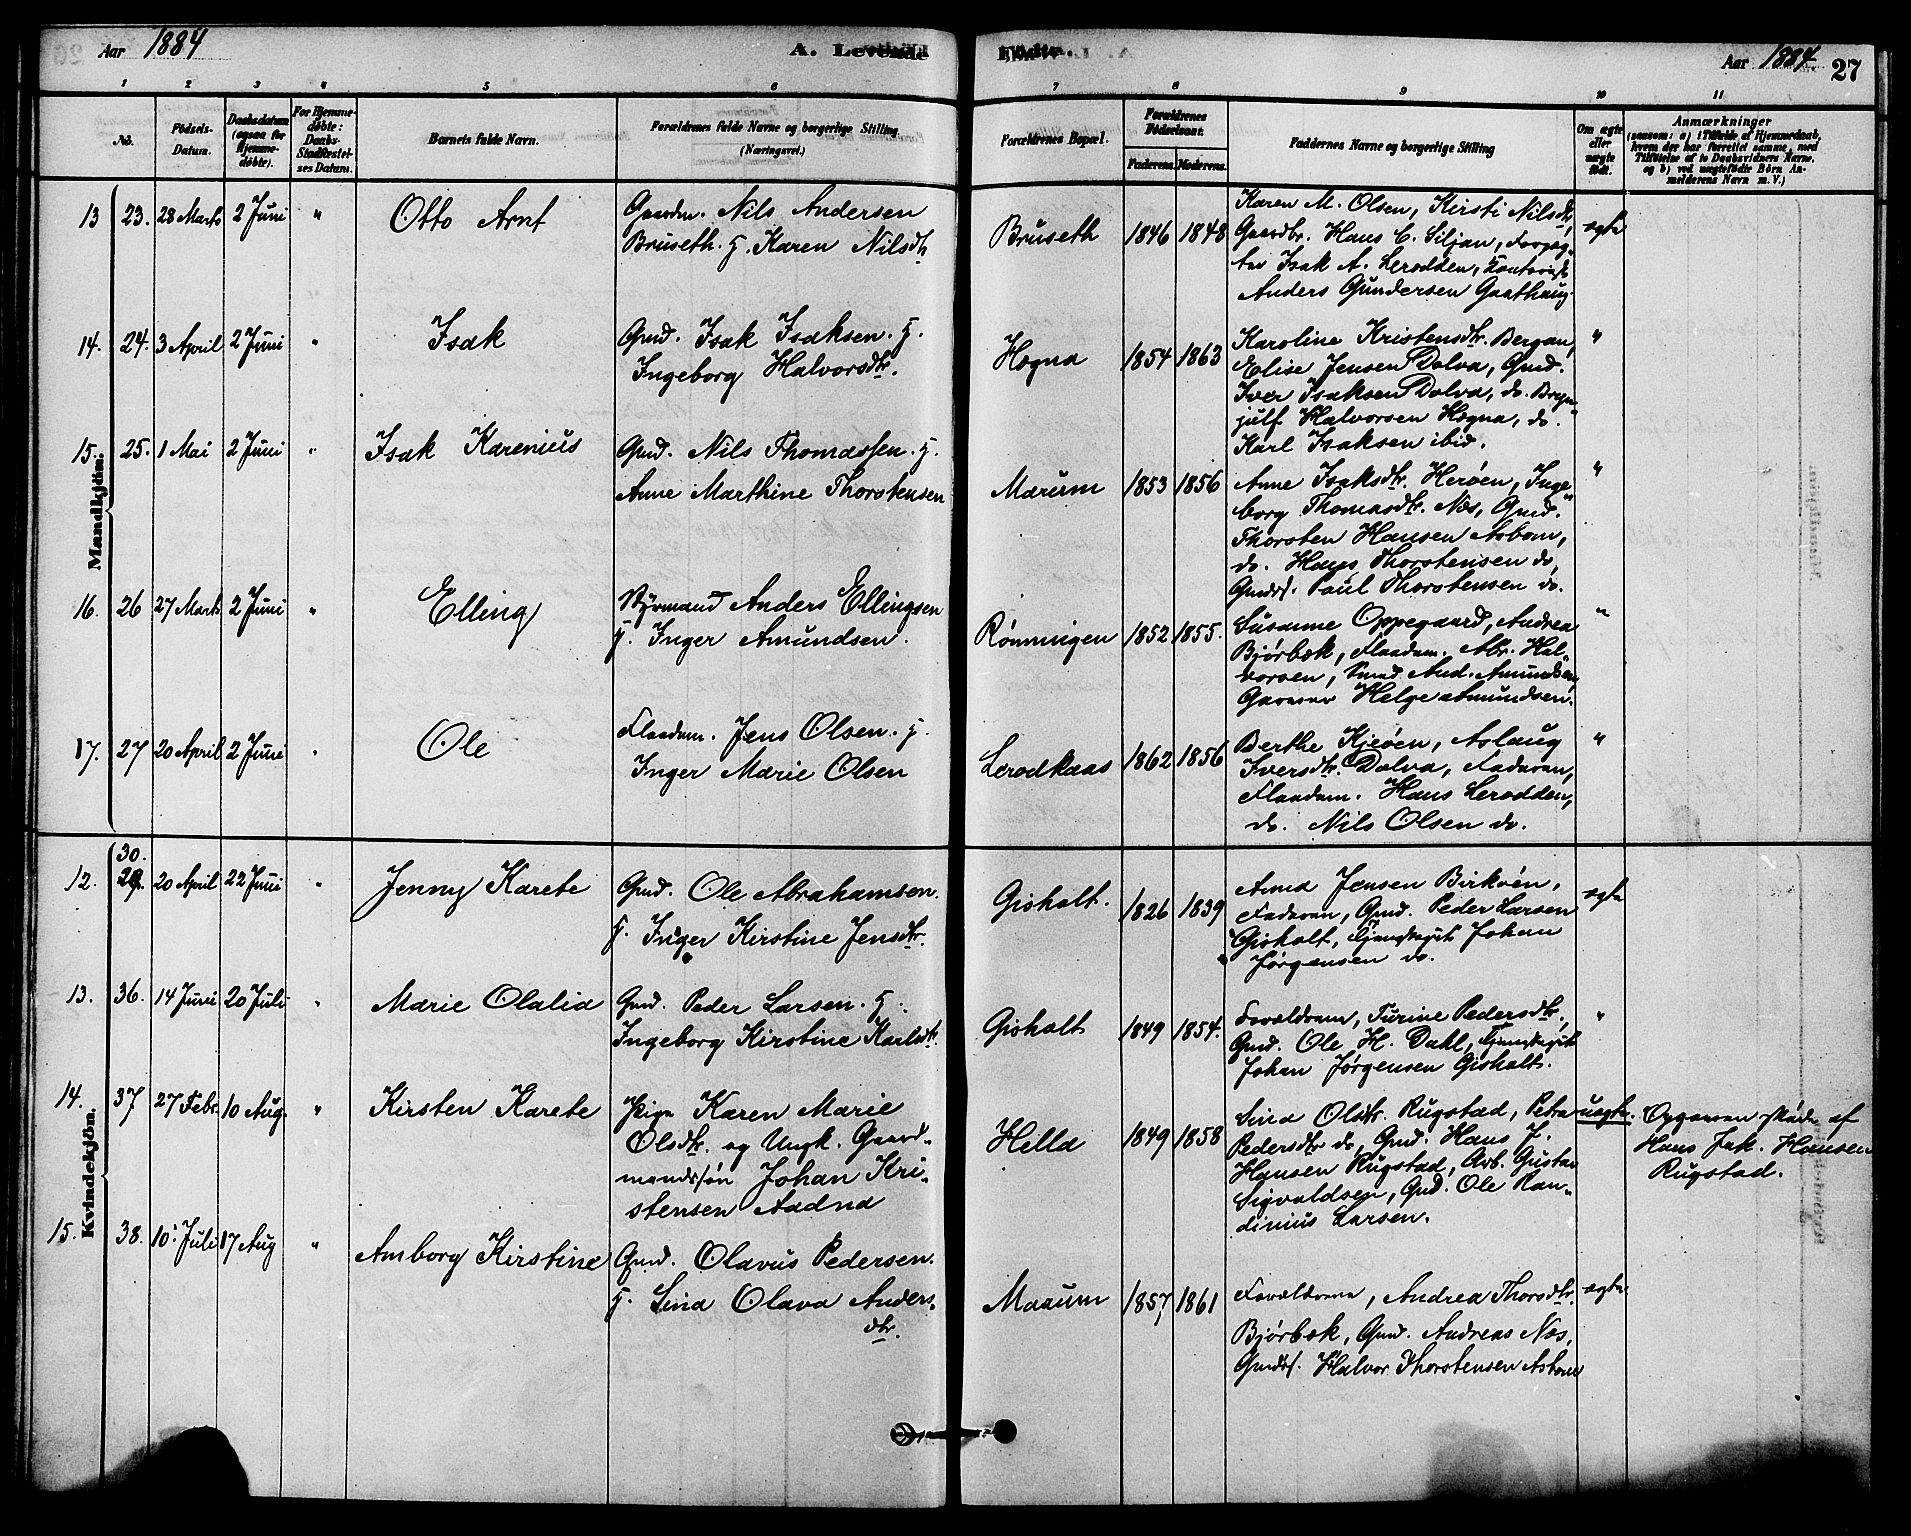 Aar 1884
A. Levende Fødte.
Aar 1884. 27
1 2 3 4 5 6 7 8 9 10 11
No.
Fødsels-Datum.
Daabsdatum (ogsaa for Hjemme-døbte).
For Hjemme-døbte: Daabs-Stadfæstel-ses Datum.
Barnets fulde Navn.
Forældrenes fulde Navne og borgerlige Stilling (Næringsvei.)
Forældrenes Bopæl.
Forældrenes Fødselsaar.
Faderens. Moderens.
Faddernes Navne og borgerlige Stilling
Om ægte eller uægte født.
Anmærkninger
(saasom: a) i Tilfælde af Hjemmedaab, hvem der har forrettet samme, med Tilføielse af to Daabsvidners Navne, og b) ved uægtefødte Børn An-melderens Navn m. V.)
Mandkjøn.
13 23. 28 Marts 2 Juni " Otto Arnt
Gaardm. Nils Andersen
Bruseth. H. Karen Nilsdtr
Bruseth 1846 1848
Karen M. Olsen, Kirsti Nilsdtr,
Gaardbr. Hans C. Siljan, Forpag-
ter Isak A. Lerodden, Kontorist
Anders Gundersen Gaathaug.
ægte
14. 24. 3 April 2 Juni " Isak
Gmd. Isak Isaksen. H.
Ingeborg Halvorsdtr.
Høgna 1854 1863
Karoline Kristensdtr. Bergan,
Elise Jensen Dolva, Gmd.
Iver Isaksen Dolva, do. Bryn-
julf Halvorsen Høgna, do.
Karl Isaksen ibid.
"
15. 25. 1 Mai 2 Juni " Isak Karenius
Gmd. Nils Thomassen. H.
Anne Marthine Thorstensen
Mærum 1853 1856
Anne Isaksdtr. Herøen, Inge-
borg Thomasdtr. Næs, Gmd.
Thorsten Hansen Asbom,
do. Hans Thorstensen do,
Gmdss. Paul Thorstensen do.
"
16. 26 27 Marts 2 Juni " Elling
Styrmand Anders Ellingsen
H. Inger Amundsen.
Rønningen 1852 1855.
Susanne Oppegaard, Andrea
Bjørbæk, Flaadm. Abr. Hal-
vorsen, Smed And. Amundsen,
Garver Helge Amundsen.
"
17. 27 20 April 2 Juni " Ole
Flaadm. Jens Olsen. H.
Inger Marie Olsen
Lerodkaas 1862 1856
Berthe Kjeøen, Aslaug
Iversdtr. Dolva, Faderen,
Flaadm. Hans Lerodden,
do. Nils Olsen do.
"
Kvindekjøn.
12. 30. 29. 20 April 22 Juni " Jenny Karete
Gmd. Ole Abrahamsen.
H. Inger Kirstine Jensdtr.
Gisholt. 1826 1839
Anna Jensen Birkøen,
Faderen, Gmd. Peder Larsen
Gisholt, Tjenestegut Johan
Jørgensen do.
ægte
13. 36. 14 Juni 20 Juli " Marie Olalia
Gmd. Peder Larsen. H.
Ingeborg Kirstine Karlsdtr.
Gisholt 1849 1854.
Forældrene, Turine Pedersdtr,
Gmd. Ole H. Dahl, Tjenestegut
Johan Jørgensen Gisholt.
"
14. 37 27 Febr. 10 Aug. " Kirsten Karete
Pige Karen Marie
Olsdtr. og Ungk. Gaard-
mandssøn Johan Kri-
stensen Aadna
Hella 1849 1858
Sina Olsdtr. Rugstad, Petra
Pedersdtr do, Gmd. Hans J.
Hansen Rugstad, Arb. Gustav
Sigvaldsen, Gmd. Ole Kan-
dinius Larsen.
uægte.
Opgaven skede af
Hans Jak. Hansen
Rugstad.
15. 38. 10. Juli 17 Aug " Amborg Kirstine
Gmd. Olavus Pedersen.
H. Sina Olava Anders-
dtr.
Maarum 1857 1861
Forældrene, Andrea Thorsdtr.
Bjørbæk, Gmd. Andreas Næs,
Gmdss. Halvor Thorstensen Asbom
ægte.